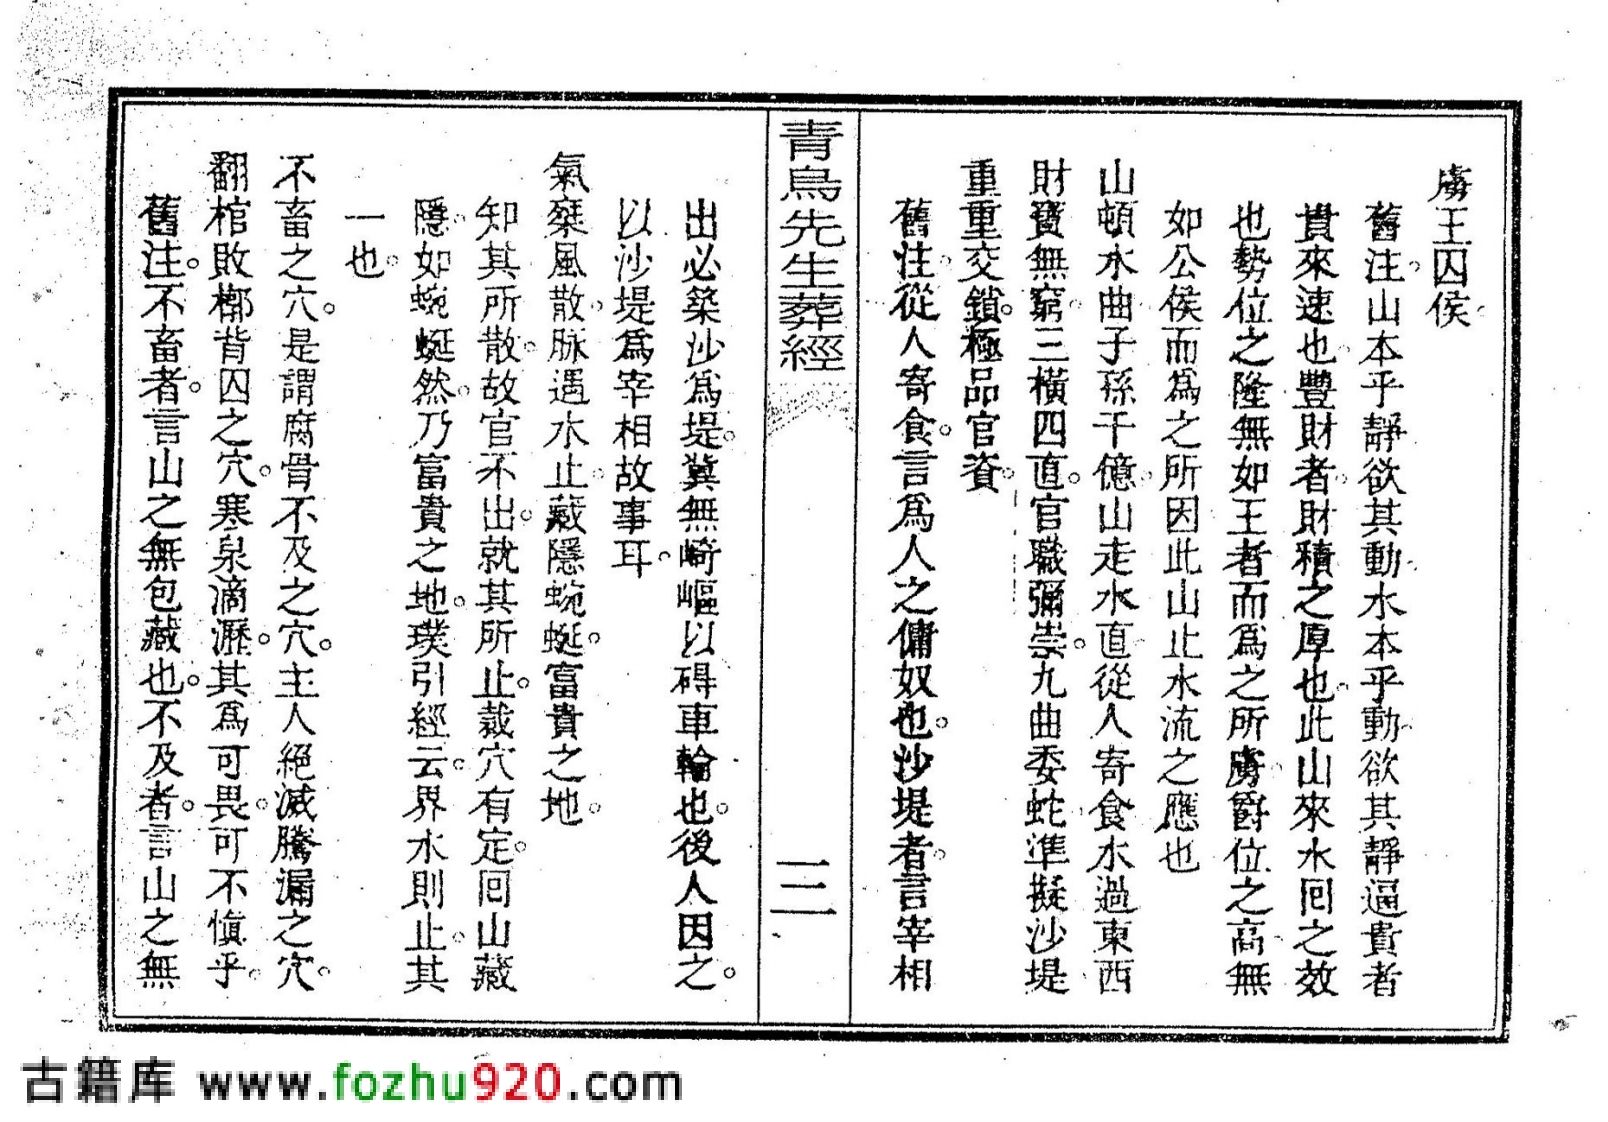 虜王囚侯
舊注山本乎靜欲其動水本乎動欲其靜逼貴者
貴來速也豐財者財積之厚也此山來水囘之效
也勢位之隆無如王者而爲之所虜爵位之高無
如公侯而爲之所因此山止水流之應也
山頓水曲子孫千億山走水直從人寄食水過東西
財寶無窮三橫四直官職彌崇九曲委蛇準擬沙堤
重重交鎖極品官資
舊注從人寄食言爲人之傭奴也沙堤者言宰相
青烏先生葬經
三
出必築沙爲堤冀無崎嶇以碍車輪也後人因之
以沙堤爲宰相故事耳
氣乘風散脉遇水止藏隱蜿蜒富貴之地
知其所散故官不出就其所止裁穴有定囘山藏
隱如蜿蜒然乃富貴之地璞引經云界水則止其
一也
不畜之穴是謂腐骨不及之穴主人絕滅騰漏之穴
翻棺敗槨背囚之穴寒泉滴瀝其爲可畏可不愼乎
舊注不畜者言山之無包藏也不及者言山之無
古籍库 www.fozhu920.com